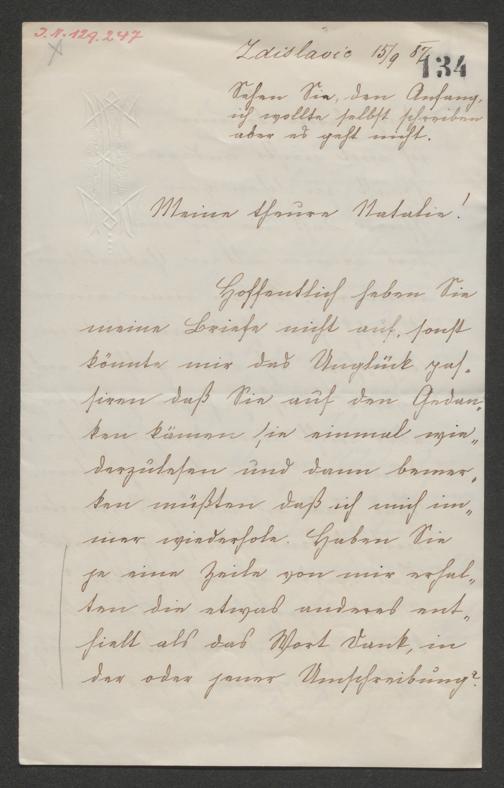 J.N. 129.247
Zdislavic 15/9 87
134
Sehen Sie, den Anfang,
ich wollte selbst schreiben
aber es geht nicht.
Meine theure Natalie!
Hoffentlich heben Sie
meine Briefe nicht auf, sonst
könnte mir das Unglück pas-
siren daß Sie auf den Gedan-
ken kämen sie einmal wie-
derzulesen und dann bemer-
ken müßten daß ich mich im-
mer wiederhole. Haben Sie
je eine Zeile von mir erhal-
ten die etwas anderes ent-
hielt als das Wort Dank, in
der oder jener Umschreibung?